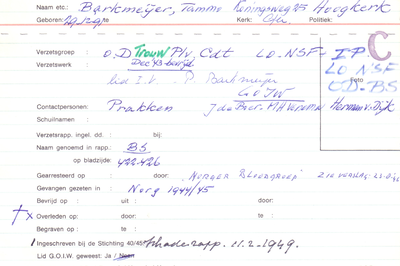 Naam etc.: Barkmeijer, Tamme Koningsweg 45 Hoogkerk
Geboren: Kerk: Politiek:
Verzetsgroep : O.D Trouw Plv. Cdt LO-NSF- IP
Verzetswerk : Dec '43 LO NSF
lid I.V. P Barkmeijer OD-BS
GOIW
C
Contactpersonen: Prakken Herman v. Dijk
Schuilnamen :
Verzetsrapp. ingel. dd. : bij:
Naam genoemd in rapp.: BS
op bladzijde: 422-426
Gearresteerd op : door: "Norger Bloedgroep" ZIE VERSLAG
Gevangen gezeten in : Norg 1944/45
Bevrijd op : uit : door:
Overleden op: door: te :
Begraven op : te :
Ingeschreven bij de Stichting 40/45: 11.2.1949.
Lid G.O.I.W. geweest: Ja / Neen